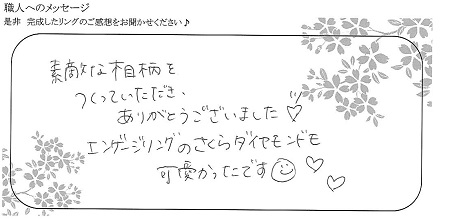 職人へのメッセージ
是非 完成したリングのご感想をお聞かせください♪
素敵な相柄を
つくっていただき、
ありがとうございました♡
エンゲージリングのさくらダイヤモンドモ
可愛かったです☺♡♡